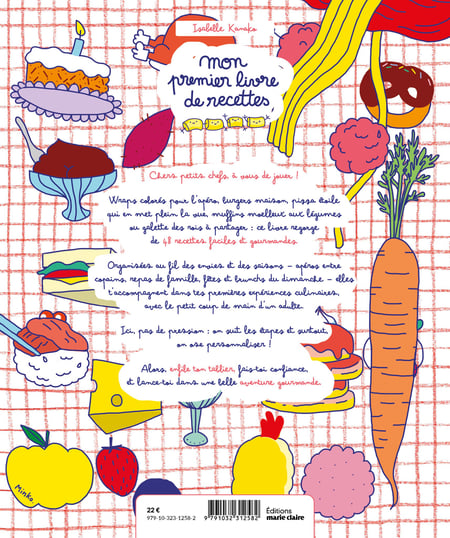 Isabelle Kanako
mon
premier livre
de recettes
Chers petits chefs, à vous de jouer !
Wraps colorés pour l'apéro, burgers maison, pizza étoile
qui en met plein la vue, muffins moelleux aux légumes
ou galette des rois à partager : ce livre regorge
de 48 recettes faciles et gourmandes.
Organisées au fil des envies et des saisons – apéros entre
copains, repas de famille, fêtes et brunchs du dimanche – elles
t'accompagnent dans tes premières expériences culinaires,
avec le petit coup de main d'un adulte.
Ici, pas de pression : on suit les étapes et surtout,
on ose personnaliser !
Alors, enfile ton tablier, fais-toi confiance,
et lance-toi dans une belle aventure gourmande.
Minko
22 €
979-10-323-1258-2
9 791032 312582
Éditions
marie claire